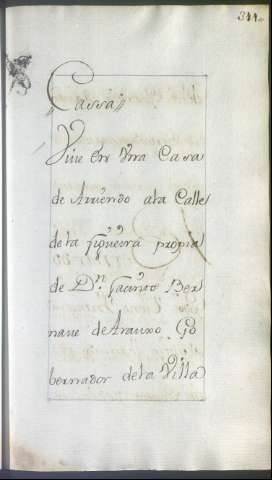 344
Cassa
Vive En Vna Casa
de Arriendo ala Calle
dela figueira propia
de Dn. Jacinto Ber
nave de Arauxo Go
bernador dela Villa